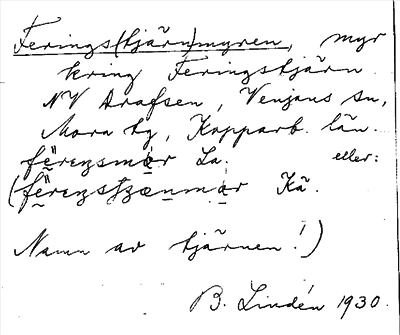 Ferings(tjärn)myren, myr
kring Feringstjärn
NV Arafsen, Venjans sn,
Mora tg, Kopparb. län.
fë̀rengsmòr La. eller:
(fë̀rengstzænmòr Kä.
Namn av tjärnen!)
B. Lindén 1930.